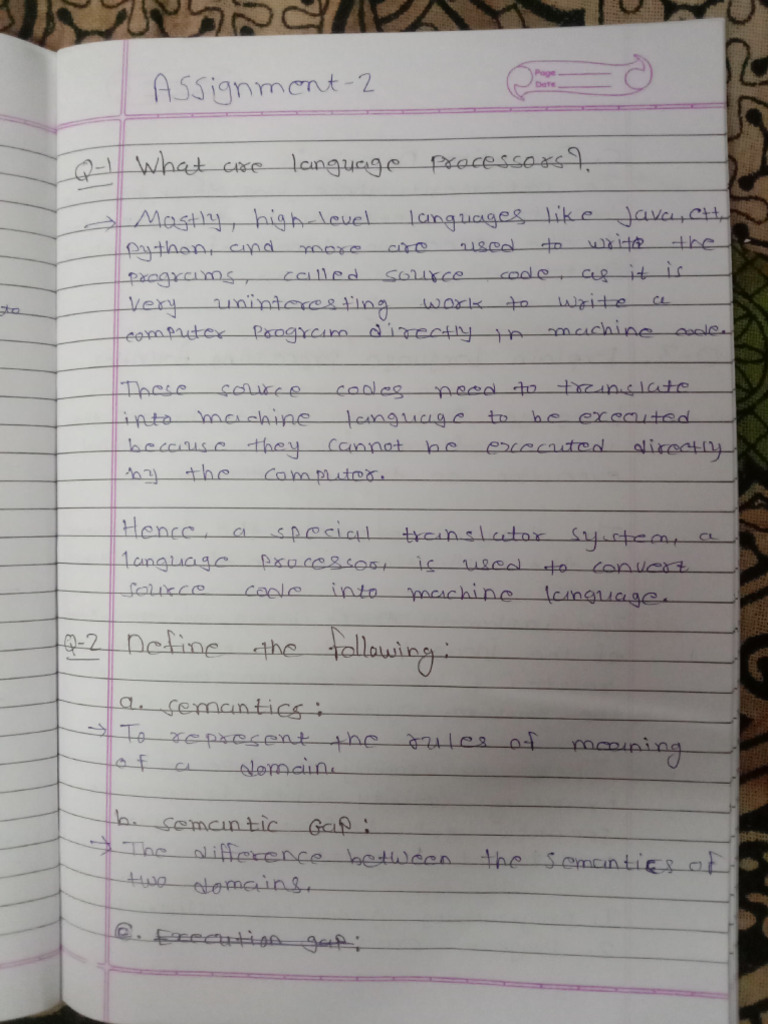 Assignment-2
Page
Date
Q-1 What are language processors?.
→ Mostly, high-level languages like Java, c++,
python, and more are used to write the
programs, called source code, as it is
very uninteresting work to write a
computer program directly in machine code.
These source codes need to translate
into machine language to be executed
because they cannot be excecuted directly
by the computer.
Hence, a special translator system, a
language processor, is used to convert
source code into machine language.
Q-2 Define the following:
a. semantics:
→ To represent the rules of meaning
of a domain.
b. semantic Gap:
→ The difference between the semantics of
two domains.
c. Execution gap:
to